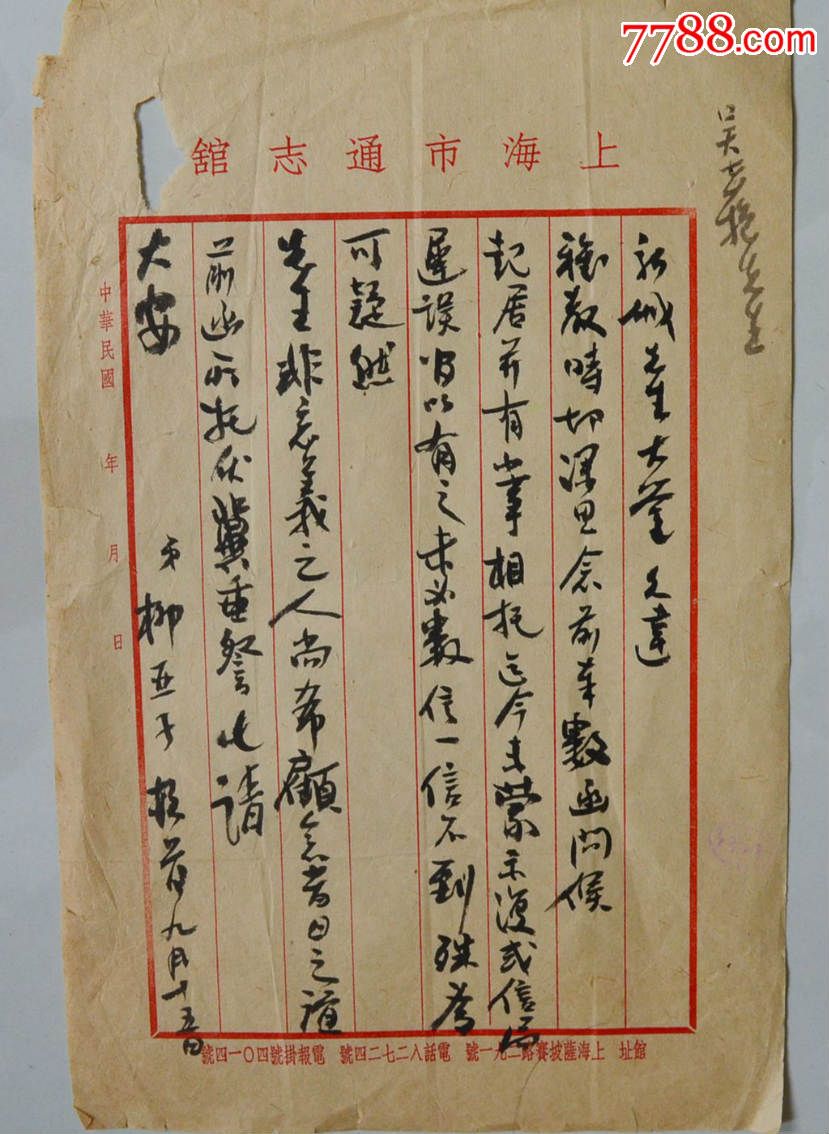 7788.com
上海市通志館
先生大鉴久違
雅教時切深思念前奉數函問候
起居并有小事相托迄今未蒙示復或信局
遲誤以有之未必數信一信不到殊為
可疑然
先生非忘義之人尚希顧念昔日之誼
前函所托伏冀垂詧此請
大安
弟柳亞子頓首九月十五日
中華民國 年 月 日
館址 上海薩坡賽路二九一號 電話八二七二四號 電報掛號四〇一四號